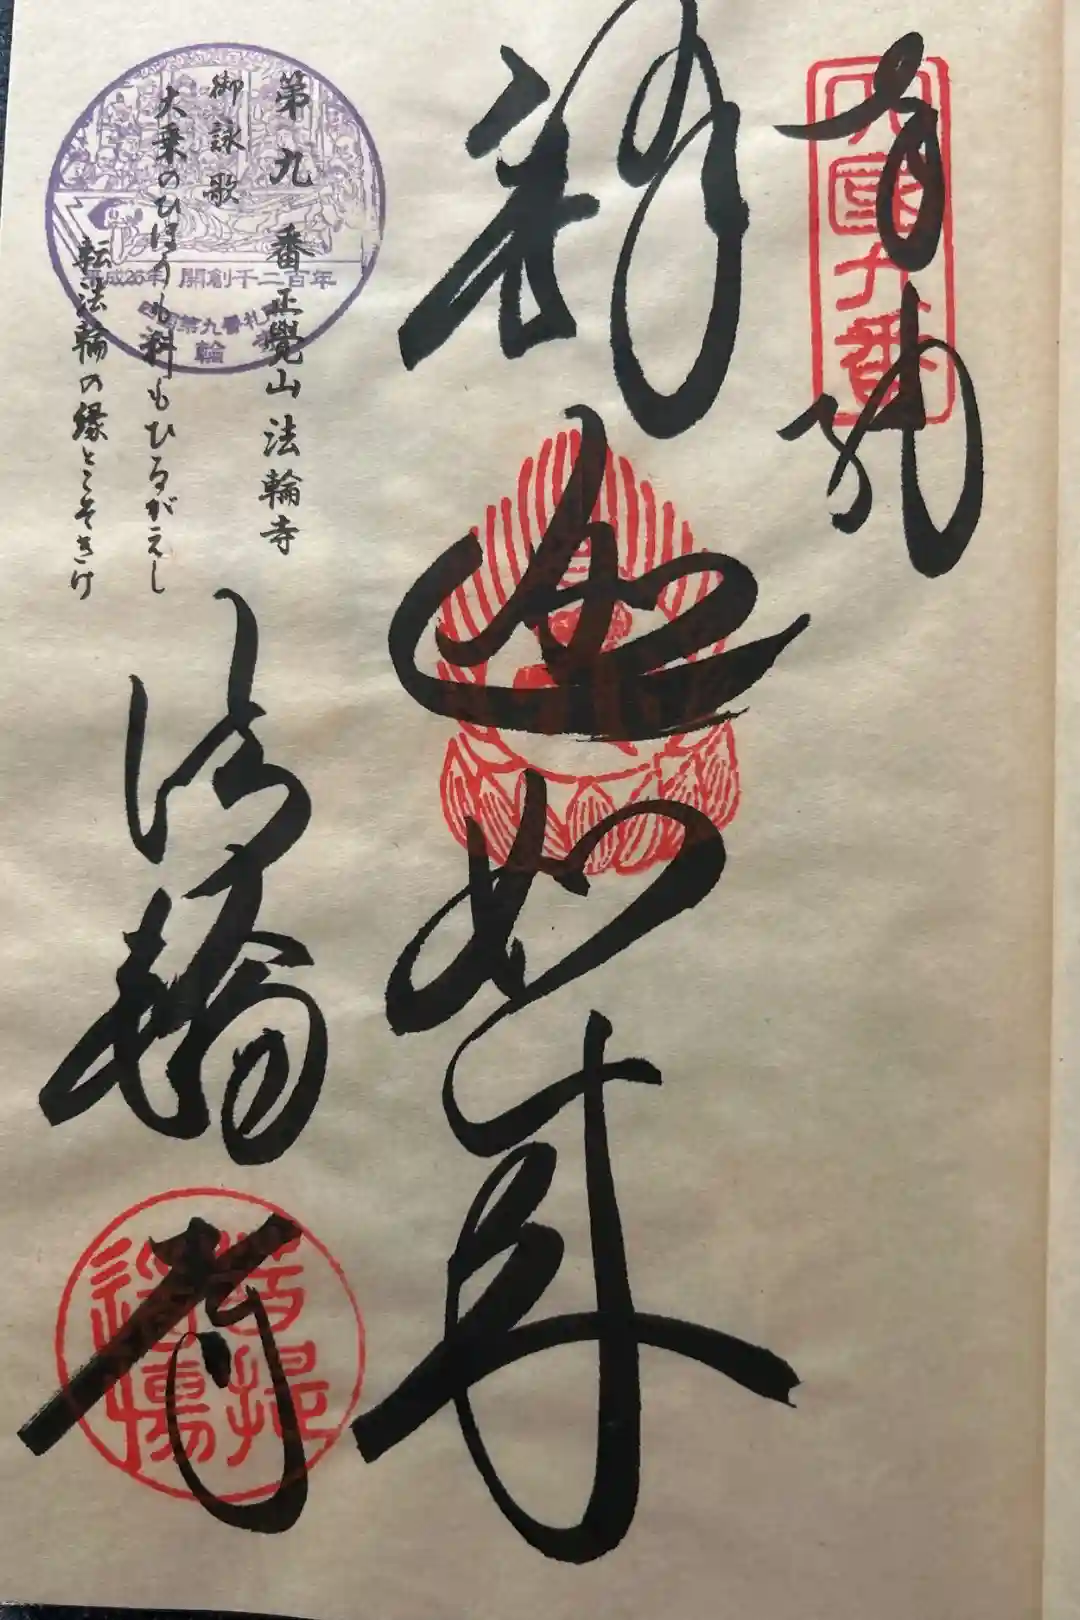 奉納
四国九番
釈迦如来
第九番正覺山法輪寺
御詠歌
大乗のひほうも科もひるがえし
転法輪の縁とこそきけ
平成26年 開創千二百年
四国第九番札所
法輪寺